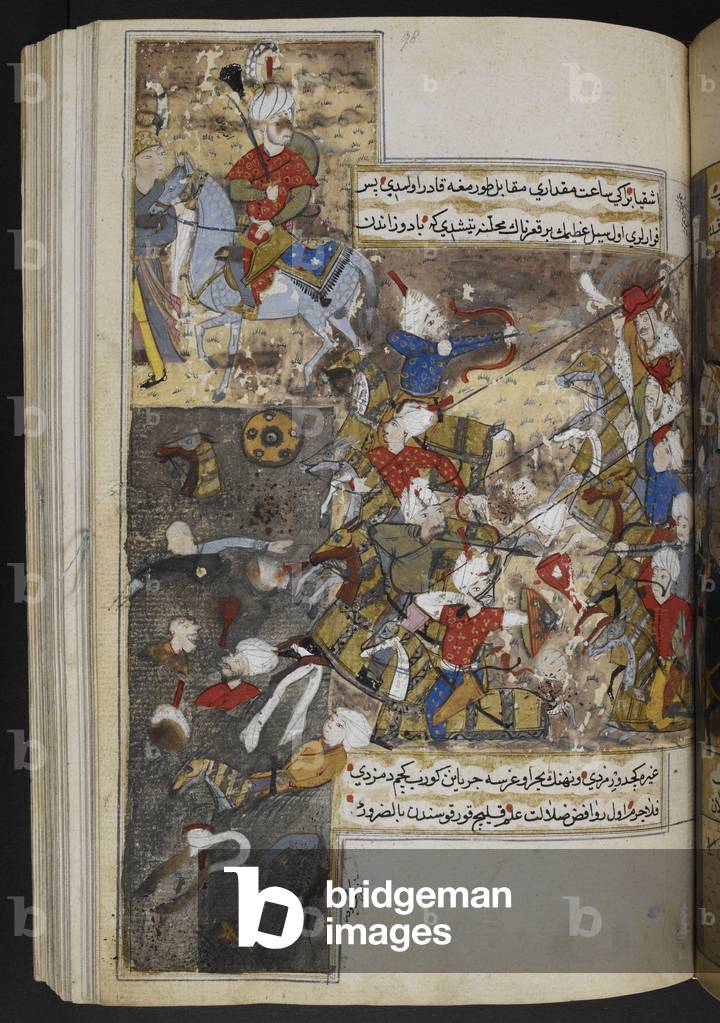 98
اشقیا بزکي ساعت مقداري مقابل طورمغه قادر اولمدي بس
فرارلري اول سیل عظیمك بر قعرناك محلنه یتشدي که بادوزاندن
غیره کچدورمزدي و نهنك بحر اوغرسه حر باین کورب کچم دمزدي
فلاجرم اول روافض ضلالت علم قلیچ قورقوسندن بالضرور
bridgeman
images